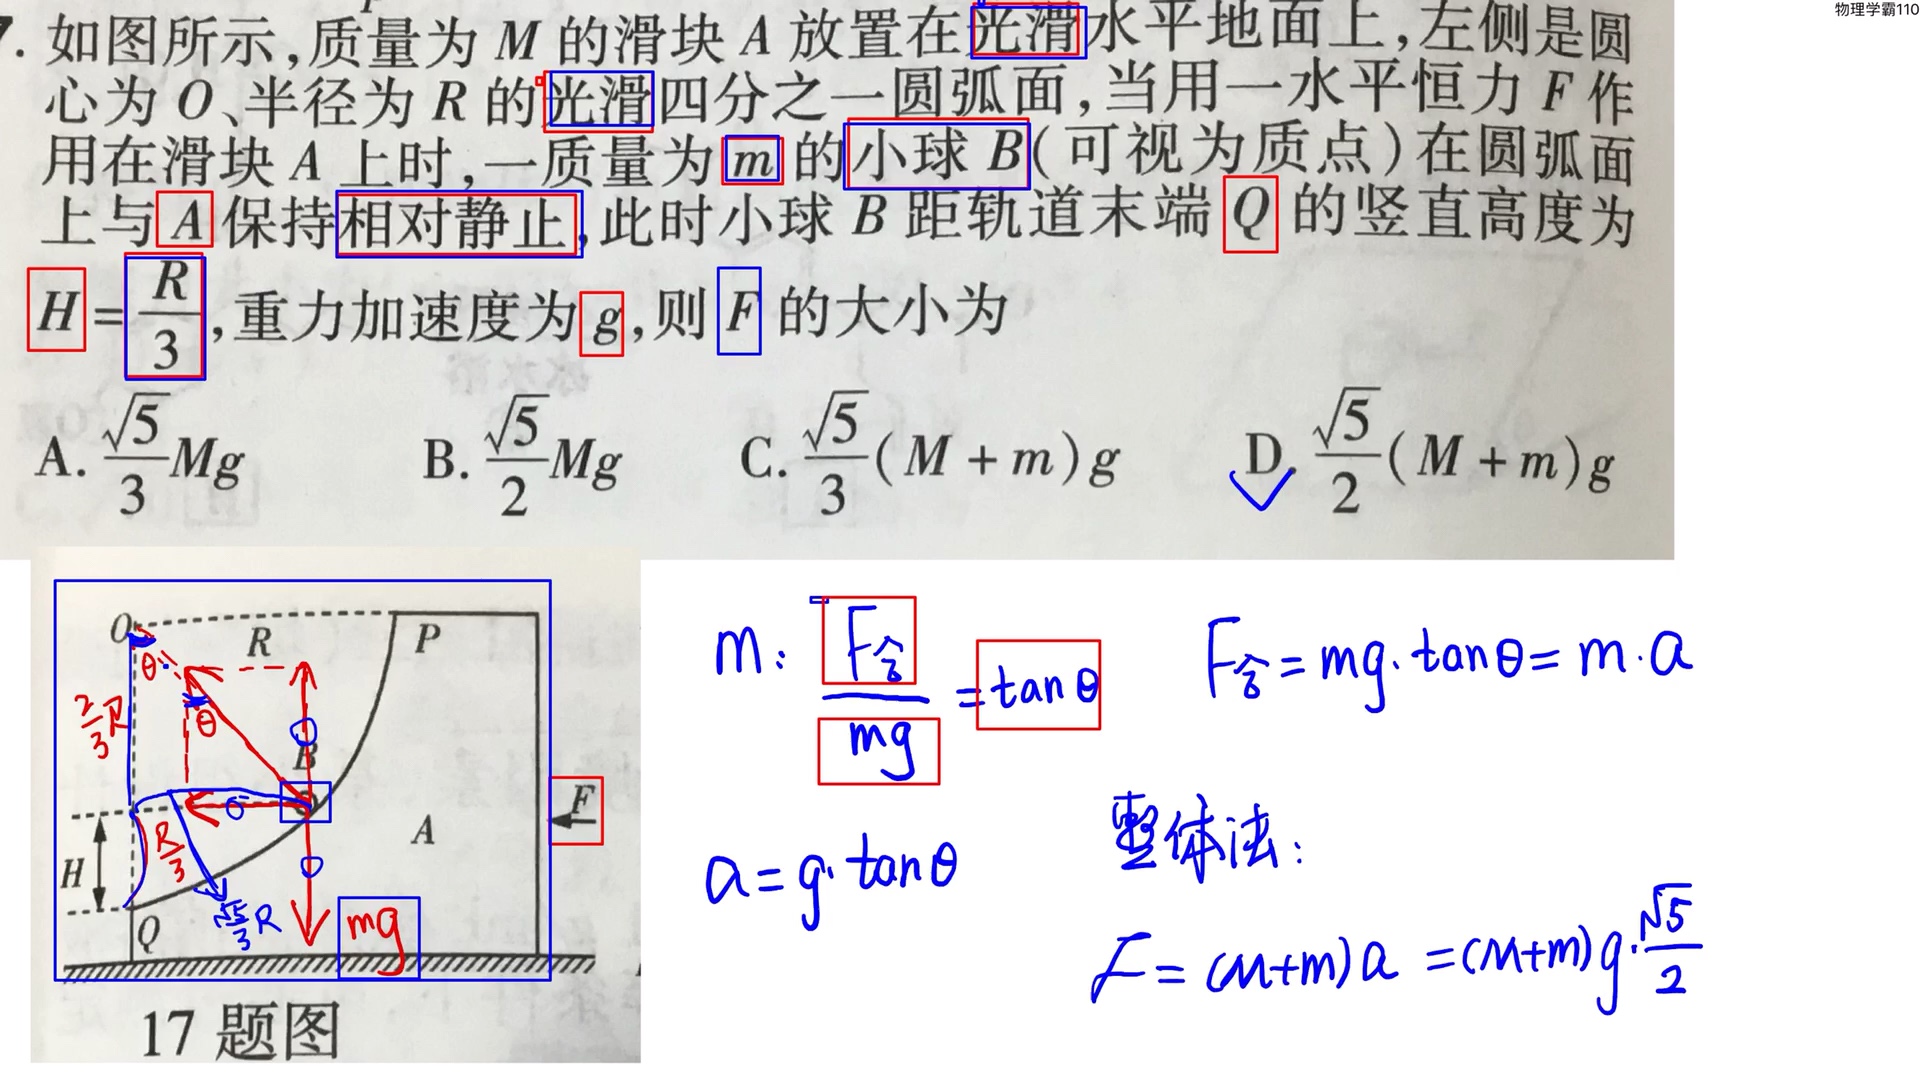 物理学霸110
7. 如图所示,质量为 M 的滑块 A 放置在光滑水平地面上,左侧是圆
心为 O、半径为 R 的光滑四分之一圆弧面,当用一水平恒力 F 作
用在滑块 A 上时,一质量为 m 的小球 B(可视为质点)在圆弧面
上与 A 保持相对静止,此时小球 B 距轨道末端 Q 的竖直高度为
H = R/3,重力加速度为 g,则 F 的大小为
A. √5/3 Mg B. √5/2 Mg C. √5/3 (M + m)g D. √5/2 (M + m)g
O R P
θ
θ
2/3 R
B
F
A
H
R/3
√5/3 R
Q
mg
17 题图
m: F合/mg = tanθ
F合 = mg·tanθ = m·a
a = g·tanθ
整体法:
F = (M+m)a = (M+m)g·√5/2